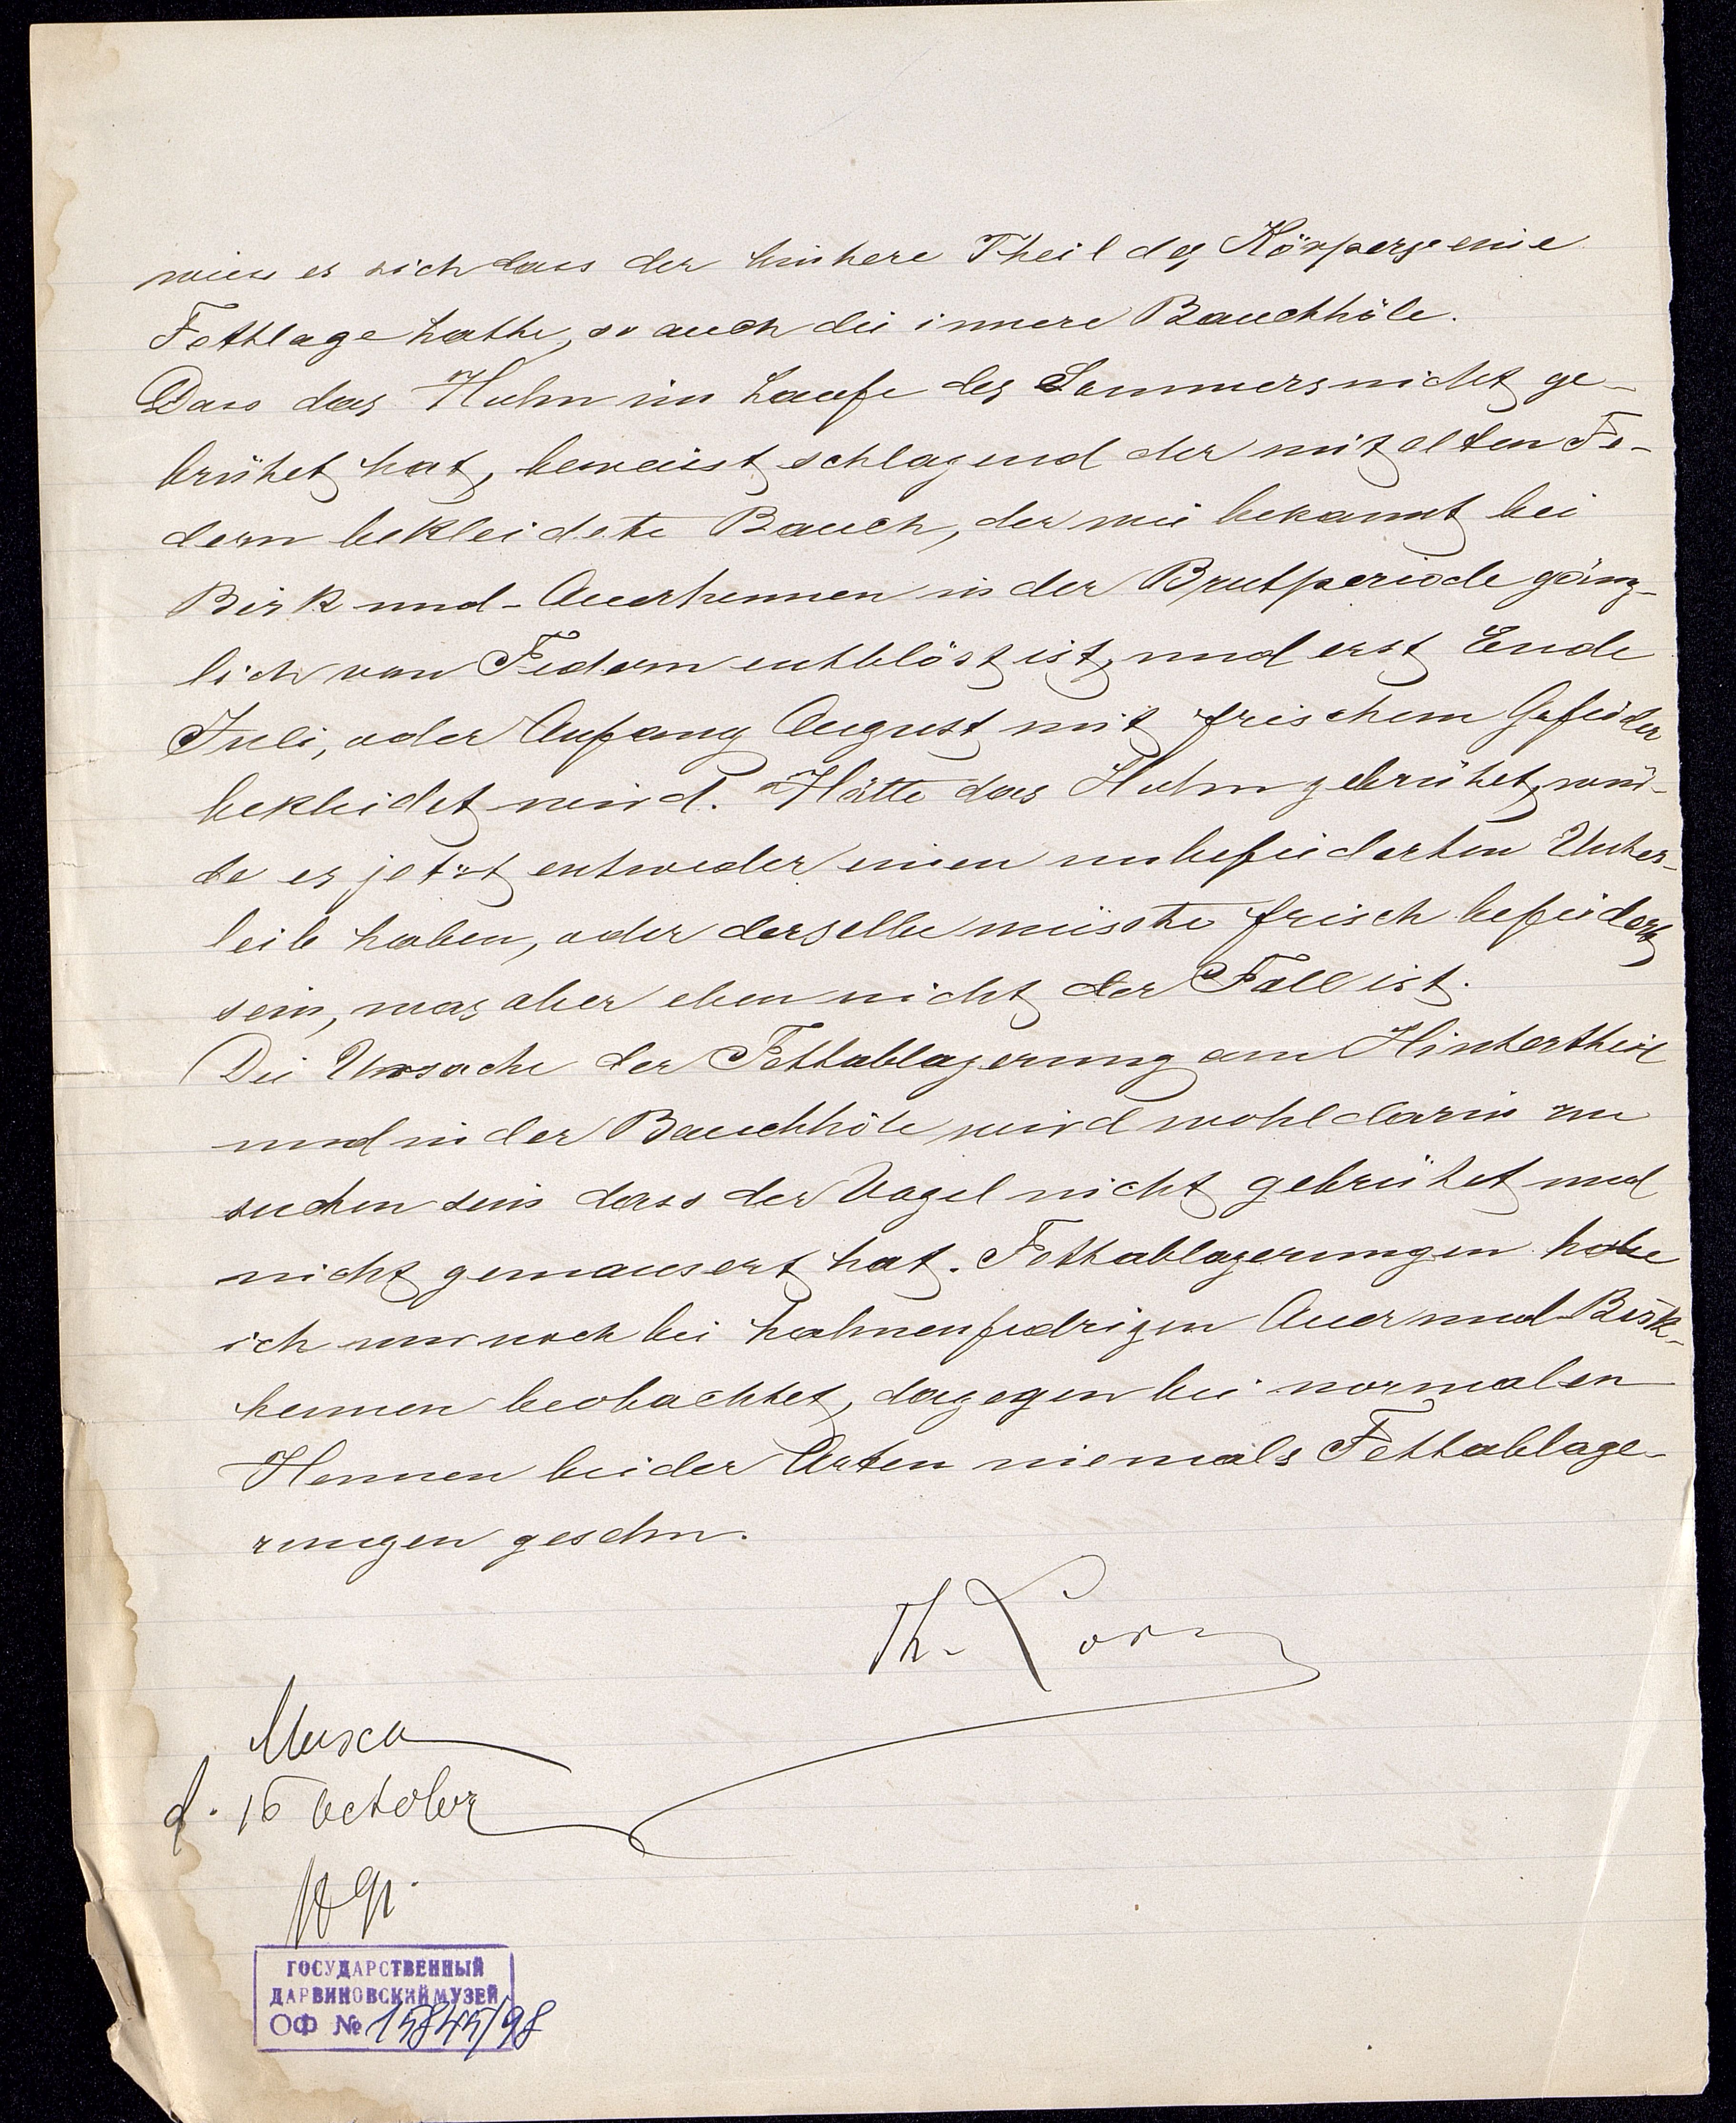 wies es sich dass der hinthere Theil des Körpers eine
Fettlage hatte, so auch die innere Bauchhöle.
Dass das Huhn im Laufe des Sommers nicht ge-
brühet hat, beweist schlagend der mit alten Fe-
dern bekleidete Bauch, der wie bekannt bei
Birk und-Auerhennen in der Brutperiode gänz-
lich von Federn entblöst ist, und erst Ende
Juli, oder Anfang August mit frischem Gefieder
bekleidet wird. Hätte das Huhn gebrühet, wür-
de es jetzt entweder einen unbefiederten Unter-
leib haben, oder derselbe müsste frisch befiedert
sein, was aber eben nicht der Fall ist.
Die Ursache der Fettablagerung am Hintertheil
und in der Bauchhöle wird wohl darin zu
suchen sein dass der Vogel nicht gebrühet und
nicht gemausert hat. Fettablagerungen habe
ich nur noch bei hahnenfedrigen Auer und-Birk-
hennen beobachtet, dagegen bei normalen
Hennen beider Arten niemals Fettablage-
rungen gesehn.
Th. Lorenz
d. 16 October
ГОСУДАРСТВЕННЫЙ
ДАРВИНОВСКИЙ МУЗЕЙ
ОФ № 15845/98